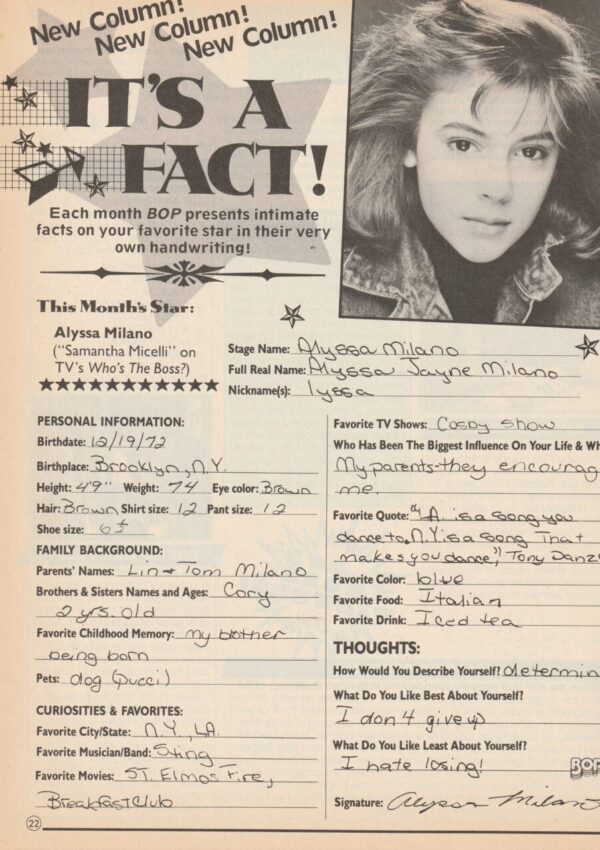 New Column!
New Column!
New Column!
IT'S A
FACT!
Each month BOP presents intimate
facts on your favorite star in their very
own handwriting!
This Month's Star:
Alyssa Milano
("Samantha Micelli" on
TV's Who's The Boss?)
Stage Name: Alyssa Milano
Full Real Name: Alyssa Jayne Milano
Nickname(s): lyssa
PERSONAL INFORMATION:
Birthdate: 12/19/72
Birthplace: Brooklyn, N.Y.
Height: 4'9" Weight: 74 Eye color: Brown
Hair: Brown Shirt size: 12 Pant size: 12
Shoe size: 6½
FAMILY BACKGROUND:
Parents' Names: Lin + Tom Milano
Brothers & Sisters Names and Ages: Cory
2 yrs. old
Favorite Childhood Memory: my brother
being born
Pets: dog (pucci)
CURIOSITIES & FAVORITES:
Favorite City/State: N.Y., LA.
Favorite Musician/Band: Sting
Favorite Movies: ST. Elmos Fire,
Breakfast Club
22
Favorite TV Shows: Cosby show
Who Has Been The Biggest Influence On Your Life & Wh
My parents-they encourag
me.
Favorite Quote: "L.A. is a song you
dance to, N.Y. is a song That
makes you dance," Tony Danz
Favorite Color: blue
Favorite Food: Italian
Favorite Drink: Iced tea
THOUGHTS:
How Would You Describe Yourself? determin
What Do You Like Best About Yourself?
I don't give up
What Do You Like Least About Yourself?
I hate losing!
BOP
Signature: Alyssa Milano